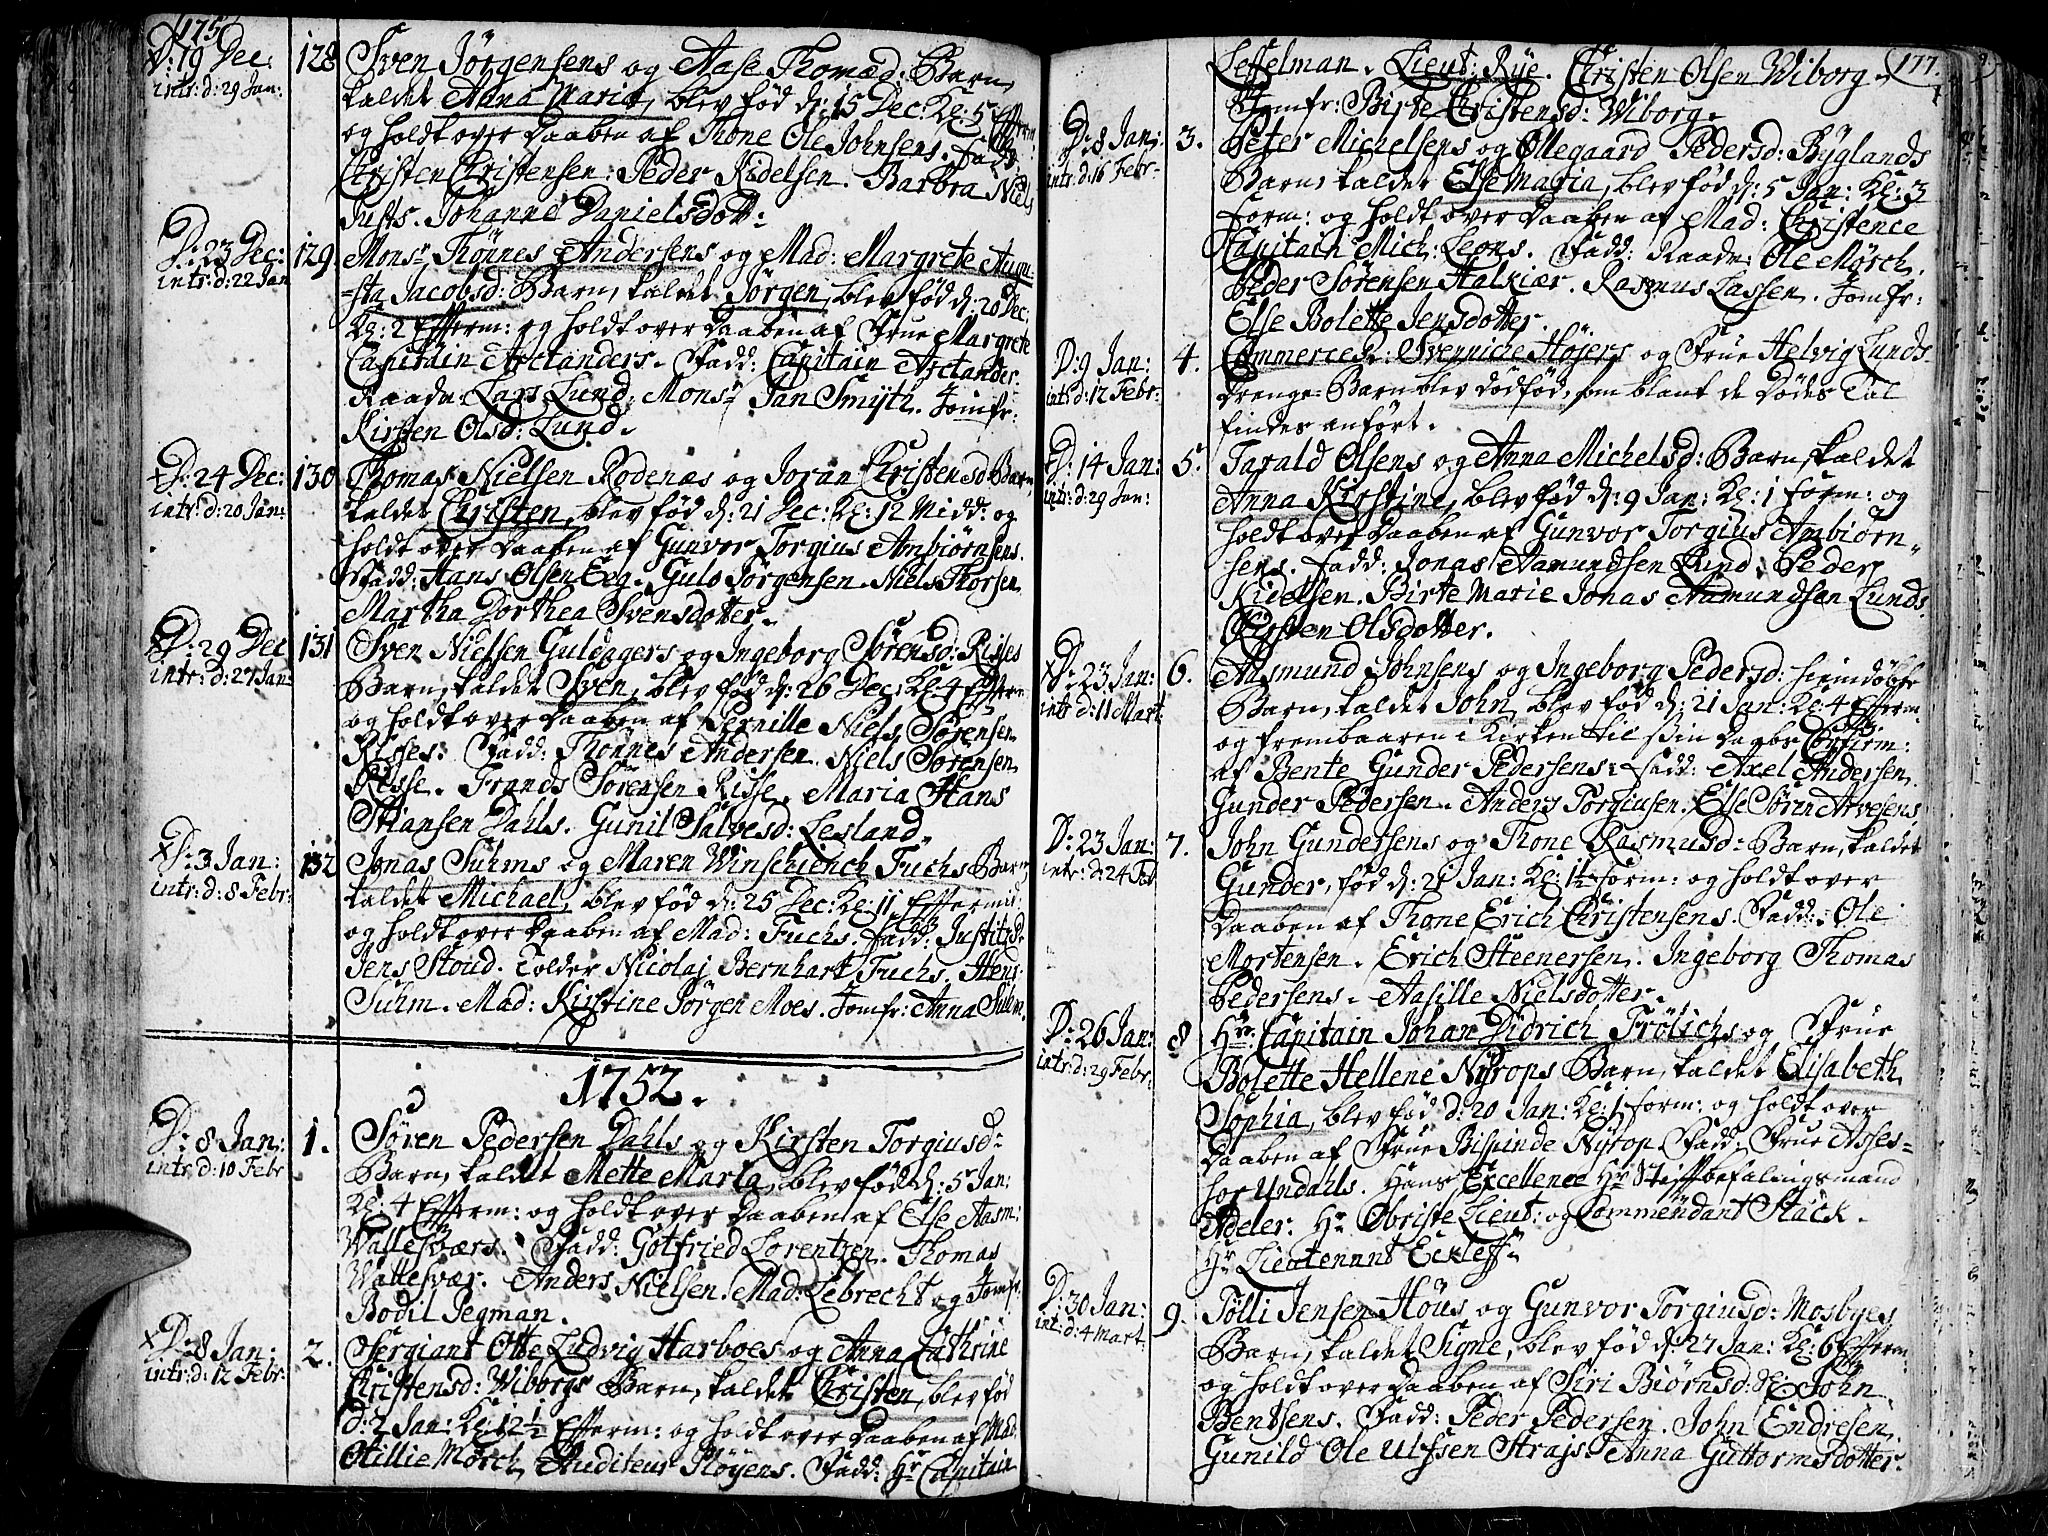 175
D: 19 Dec.
intr: d: 29 Jan:
128
Sven Jörgensens og Aase Thomæd: Barn,
kaldet Anna Maria, blev föd d: 15 Dec: Kl: 5 Efterm:
og holdt over Daaben af Thone Ole Johnsens. Fadd:
Christen Christensen. Peder Kidelsen. Barbra Niels
Justs. Johanne Danielsdott:
D: 23 Dec:
intr: d: 22 Jan
129
Monsr Thönnes Andersens og Mad: Margrete Augu-
sta Jacobsd: Barn, kaldet Jörgen, blev föd d: 20 Dec:
Kl: 2 Efterm: og holdt over Daaben af Frue Margrete
Capitain Arctanders. Fadd: Capitain Arctander.
Raadm: Lars Lund. Monsr Jan Smijth. Jomfr:
Kirsten Olsd: Lund.
D: 24 Dec:
intr: d: 20 Jan:
130
Thomas Nielsen Rodenæs og Joran Christensd: Barn,
kaldet Christen, blev föd d: 21 Dec: Kl: 12 Midd: og
holdt over Daaben af Gunvor Torgius Ambiörnsens.
Fadd: Hans Olsen Eeg. Gulo Jörgensen. Niels Thorsen
Martha Dorthea Svensdotter.
D: 29 Dec
intr: d: 27 Jan:
131
Sven Nielsen Guldagers og Ingeborg Sörensd: Risses
Barn, kaldet Sven, blev föd d: 26 Dec: Kl: 4 Efterm:
og holdt over Daaben af Pernille Niels Sörensen
Risses. Fadd: Thonnes Andersen. Niels Sörensen
Risse. Frands Sörensen Risse. Maria Hans
Stiansen Dahls. Gunil Salvesd: Lesland.
D: 3 Jan:
intr: d: 8 Febr:
132
Jonas Suhms og Maren Winschiench Fuchs Barn,
kaldet Michael, blev föd d: 25 Dec: Kl: 11 Efterm:
og holdt over Daaben af Mad: Fuchs. Fadd: Justitzr:
Jens Stoud. Tolder Nicolaj Bernhart Fuchs. Hens
Suhm. Mad: Kirstine Jörgen Moes. Jomfr: Anna Suhm.
1752.
D: 8 Jan:
intr: d: 10 Febr
1.
Sören Pedersen Dahls og Kirsten Torgiusd:
Barn, kaldet Mette Marta, blev föd d: 5 Jan:
Kl: 4 Efterm: og holdt over Daaben af Else Aasm:
Wattesværs. Fadd: Gotfried Lorentzen. Thomas
Wattesvær. Anders Nielsen. Mad: Lebrecht og Jomfr:
Bodil Segman.
D: 8 Jan:
intr: d: 12 Febr:
2.
Sergiant Otte Ludvig Harboes og Anna Cathrine
Christensd: Wiborgs Barn, kaldet Christen, blev föd
d: 2 Jan: Kl: 12 1/2 Efterm: og holdt over Daaben af Mad:
Hillie Mörch Auditeur Plöyens. Fadd: Hr Capitain
177.
Lesselman. Lieut: Rye. Christen Olsen Wiborg.
Jomfr: Birte Christensd: Wiborg.
D: 8 Jan:
intr: d: 16 Febr
3.
Peter Michelsens og Öllegaard Pedersd: Byglands
Barn, kaldet Else Maria, blev föd d: 5 Jan: Kl: 3
Form: og holdt over Daaben af Mad: Christence
Capitain Mich: Leons. Fadd: Raadm: Ole Mörch.
Peder Sörensen Halkiær. Rasmus Lassen. Jomfr:
Else Bolette Jensdotter.
D: 9 Jan:
intr: d: 12 Febr:
4.
Commerce R: Svenniche Höjers og Frue Helvig Lunds
Drenge-Barn blev dödföd, som blant de Dödes Tal
findes anfört.
D: 14 Jan:
intr: d: 29 Jan:
5.
Tarald Olsens og Anna Michelsd: Barn, kaldet
Anna Kirstine, blev föd d: 9 Jan: Kl: 1 Form: og
holdt over Daaben af Gunvor Torgius Ambiörn-
sens. Fadd: Jonas Aamundsen Lund. Peder
Kidelsen. Birte Marie Jonas Aamundsen Lunds.
Kirsten Olsdotter.
D: 23 Jan:
intr: d: 11 Mart:
6.
Aasmund Johnsens og Ingeborg Pedersd: hiemdöbte
Barn, kaldet John, blev föd d: 21 Jan: Kl: 4 Efterm:
og frembaaren i Kirken til sin Daabs Confirm:
af Bente Gunder Pedersens. Fadd: Axel Andersen.
Gunder Pedersen. Anders Torgiusen. Else Sören Arvesens.
D: 23 Jan:
intr: d: 24 Feb
7.
John Gundersens og Thone Rasmusd: Barn, kaldet
Gunder, föd d: 21 Jan: Kl: 1 1/2 Form: og holdt over
Daaben af Thone Erich Christensens. Fadd: Ole
Mortensen. Erich Steenersen. Ingeborg Thomas
Pedersens. Aasille Nielsdotter.
D: 26 Jan:
intr: d: 29 Febr:
8
Hr Capitain Johan Didrich Frölichs og Frue
Bolette Hellene Nyrops Barn, kaldet Elisabeth
Sophia, blev föd d: 20 Jan: Kl: 1 Form: og holdt over
Daaben af Frue Bispinde Nyrop. Fadd: Frue Asses-
sor Undahls. Hans Excellence Hr Stiftbefalingsmand
Adeler. Hr Obriste Lieut: og Commendant Stäck.
Hr Lieutenant Eckleff.
D: 30 Jan:
int: d: 4 Mart.
9.
Tölli Jensen Höus og Gunvor Torgiusd: Mosbyes
Barn, kaldet Signe, blev föd d: 27 Jan: Kl: 6 Efterm:
og holdt over Daaben af Siri Biörnsd: John
Bentsens. Fadd: Peder Pedersen. John Endresen.
Gunild Ole Ulfssen Strajs. Anna Guttormsdotter.